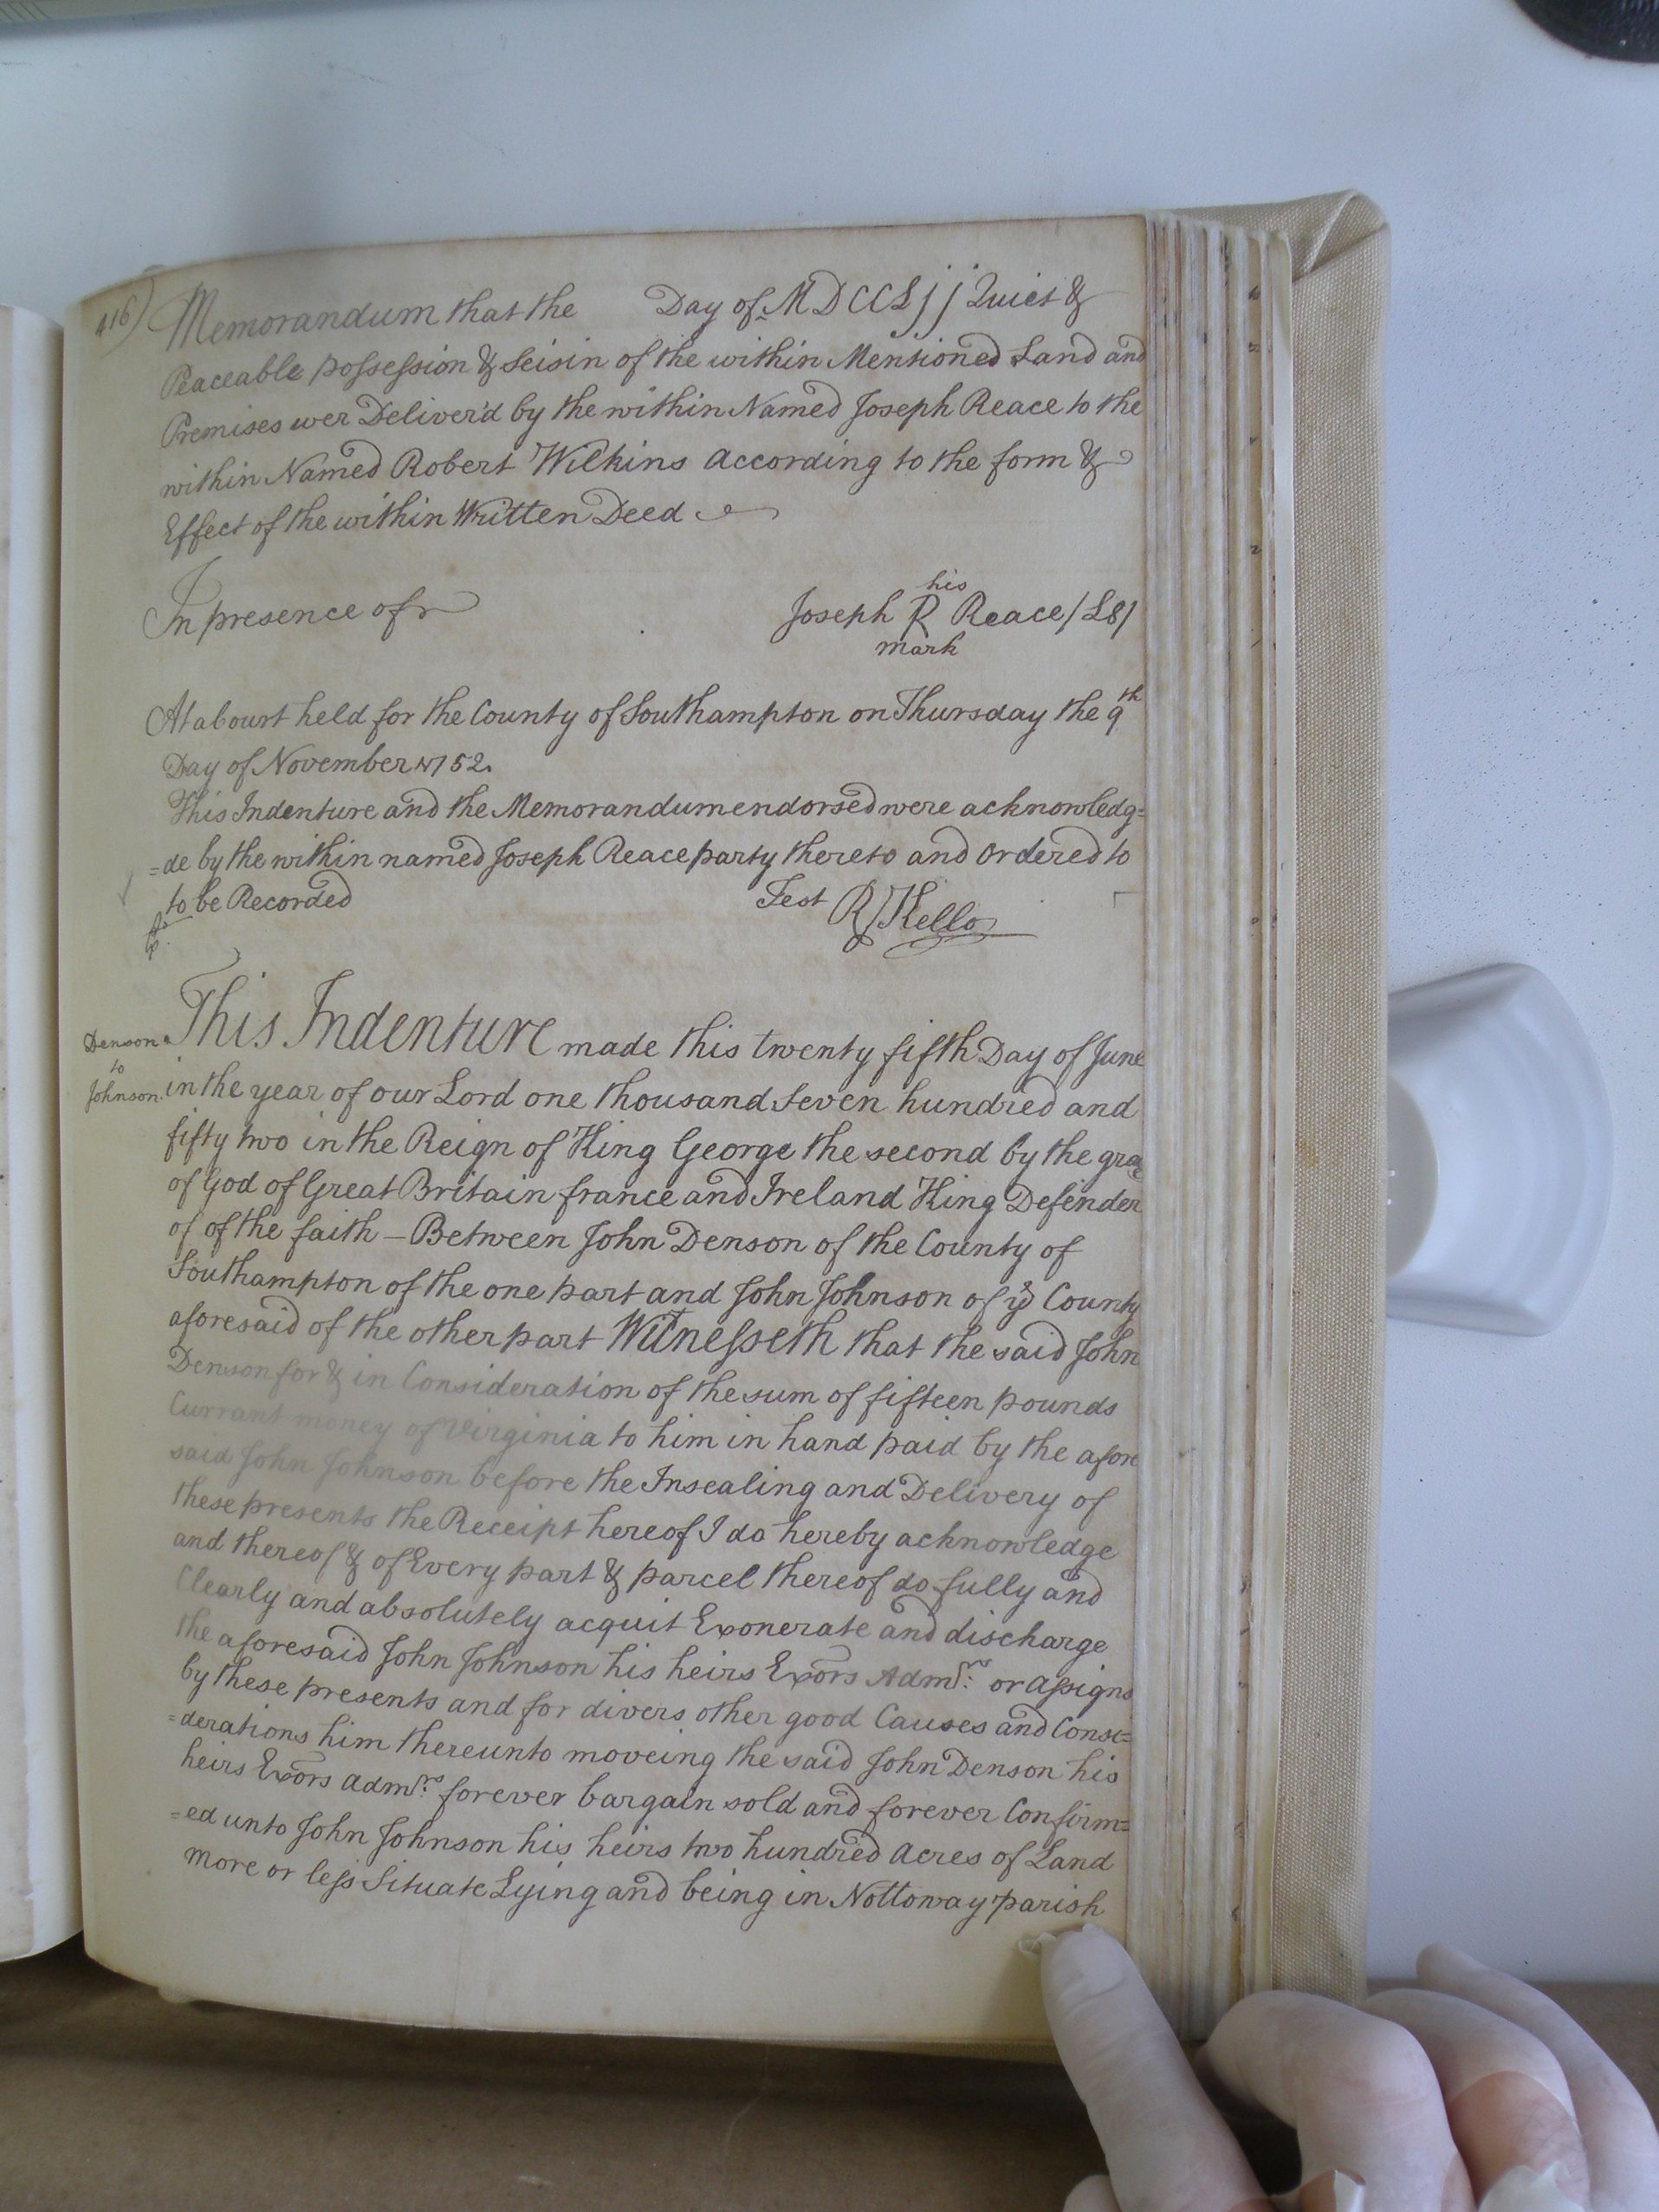 416)
Memorandum that the Day of MDCCLjj Quiet &
Peaceable possession & Seisin of the within Mentioned Land and
Premises wer Deliver'd by the within Named Joseph Reace to the
within Named Robert Wilkins according to the form &
Effect of the within Written Deed
In presence of
his
Joseph R Reace /LS/
mark
At a Court held for the County of Southampton on Thursday the 9th
Day of November 1752.
This Indenture and the Memorandum endorsed were acknowledg=
=de by the within named Joseph Reace party thereto and Ordered to
to be Recorded
Test R Kello
Denson
to
Johnson.
This Indenture made this twenty fifth Day of June
in the year of our Lord one thousand Seven hundred and
fifty two in the Reign of King George the second by the grace
of God of Great Britain france and Ireland King Defender
of of the faith — Between John Denson of the County of
Southampton of the one part and John Johnson of ye County
aforesaid of the other part Witnesseth that the said John
Denson for & in Consideration of the sum of fifteen pounds
Currant money of Virginia to him in hand paid by the afore
said John Johnson before the Insealing and Delivery of
these presents the Receipt hereof I do hereby acknowledge
and thereof & of Every part & parcel thereof do fully and
Clearly and absolutely acquit Exonerate and discharge
the aforesaid John Johnson his heirs Exors Admrs: or assigns
by these presents and for divers other good Causes and Consi=
=derations him thereunto moveing the said John Denson his
heirs Exors admrs: forever bargain sold and forever Confirm=
=ed unto John Johnson his heirs two hundred Acres of Land
more or less Situate Lying and being in Nottoway parish